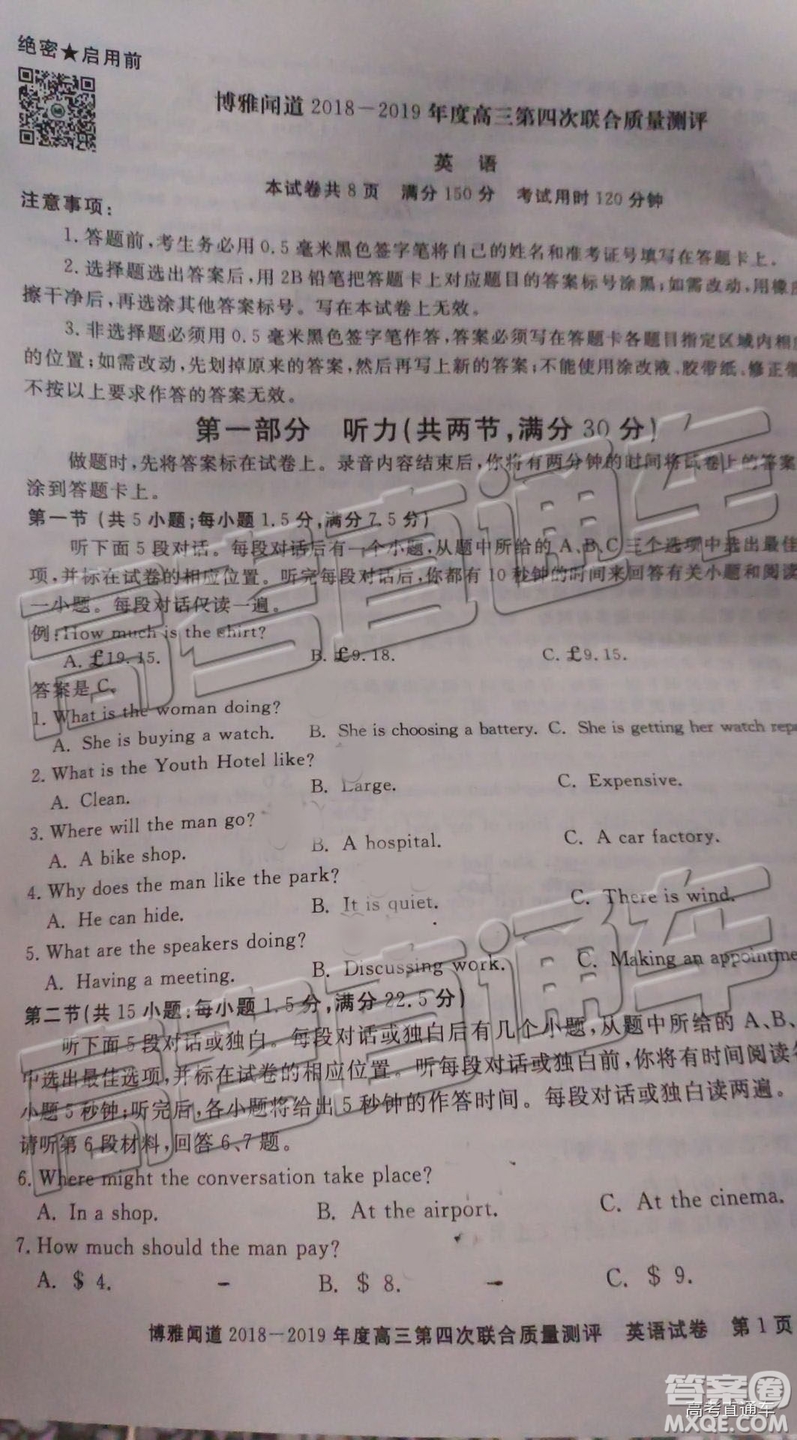 绝密★启用前
博雅闻道2018-2019年度高三第四次联合质量测评
英 语
本试卷共8页 满分150分 考试用时120分钟
注意事项:
1.答题前,考生务必用0.5毫米黑色签字笔将自己的姓名和准考证号填写在答题卡上。
2.选择题选出答案后,用2B铅笔把答题卡上对应题目的答案标号涂黑;如需改动,用橡皮
擦干净后,再选涂其他答案标号。写在本试卷上无效。
3.非选择题必须用0.5毫米黑色签字笔作答,答案必须写在答题卡各题目指定区域内相
的位置;如需改动,先划掉原来的答案,然后再写上新的答案;不能使用涂改液、胶带纸、修正
不按以上要求作答的答案无效。
第一部分 听力(共两节,满分30分)
做题时,先将答案标在试卷上。录音内容结束后,你将有两分钟的时间将试卷上的答案
涂到答题卡上。
第一节(共5小题;每小题1.5分,满分7.5分)
听下面5段对话。每段对话后有一个小题,从题中所给的A、B、C三个选项中选出最佳
项,并标在试卷的相应位置。听完每段对话后,你都有10秒钟的时间来回答有关小题和阅读
一小题。每段对话仅读一遍。
例:How much is the shirt?
A.£19.15. B.£9.18. C.£9.15.
答案是C。
1. What is the woman doing?
A. She is buying a watch. B. She is choosing a battery. C. She is getting her watch repa
2. What is the Youth Hotel like?
A. Clean. B. Large. C. Expensive.
3. Where will the man go?
A. A bike shop. B. A hospital. C. A car factory.
4. Why does the man like the park?
A. He can hide. B. It is quiet. C. There is wind.
5. What are the speakers doing?
A. Having a meeting. B. Discussing work. C. Making an appointme
第二节(共15小题;每小题1.5分,满分22.5分)
听下面5段对话或独白。每段对话或独白后有几个小题,从题中所给的A、B、
中选出最佳选项,并标在试卷的相应位置。听每段对话或独白前,你将有时间阅读
小题5秒钟;听完后,各小题将给出5秒钟的作答时间。每段对话或独白读两遍。
请听第6段材料,回答6、7题。
6. Where might the conversation take place?
A. In a shop. B. At the airport. C. At the cinema.
7. How much should the man pay?
A. $ 4. B. $ 8. C. $ 9.
博雅闻道2018-2019年度高三第四次联合质量测评 英语试卷 第1页
高考直通车
高考直通车
答案圈
高考直通车
MXQE.COM